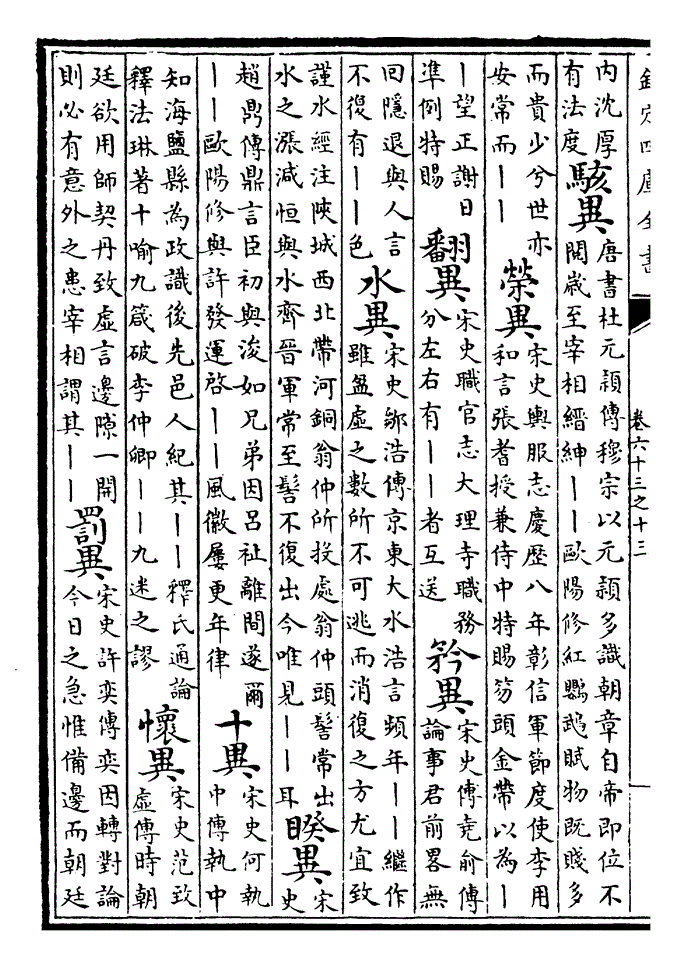 欽定四庫全書
卷六十三之十三
内沈厚有法度駭異唐書杜元頴傳穆宗以元頴多識朝章自帝即位不閲歳至宰相縉紳——歐陽修紅鸚鵡賦物既賤多
而貴少兮世亦安常而——榮異宋史輿服志慶歴八年彰信軍節度使李用和言張耆授兼侍中特賜笏頭金帶以為—
—望正謝日準例特賜翻異宋史職官志大理寺職務分左右有——者互送矜異宋史傳堯俞傳論事君前畧無
回隱退與人言不復有——色水異宋史鄒浩傳京東大水浩言頻年——繼作雖盈虛之數所不可逃而消復之方尤宜致
謹水經注陝城西北帶河銅翁仲所投處翁仲頭髻常出水之漲減恒與水齊晉軍常至髻不復出今唯見——耳睽異宋史
趙鼎傳鼎言臣初與浚如兄弟因吕祉離間遂爾——歐陽修與許發運啓——風徽屢更年律十異宋史何執中傳執中
知海鹽縣為政識後先邑人紀其——釋氏通論釋法琳著十喻九箴破李仲卿——九迷之謬懷異宋史范致虛傳時朝
廷欲用師契丹致虛言邊隙一開則必有意外之患宰相謂其——罰異宋史許奕傳奕因轉對論今日之急惟備邊而朝廷